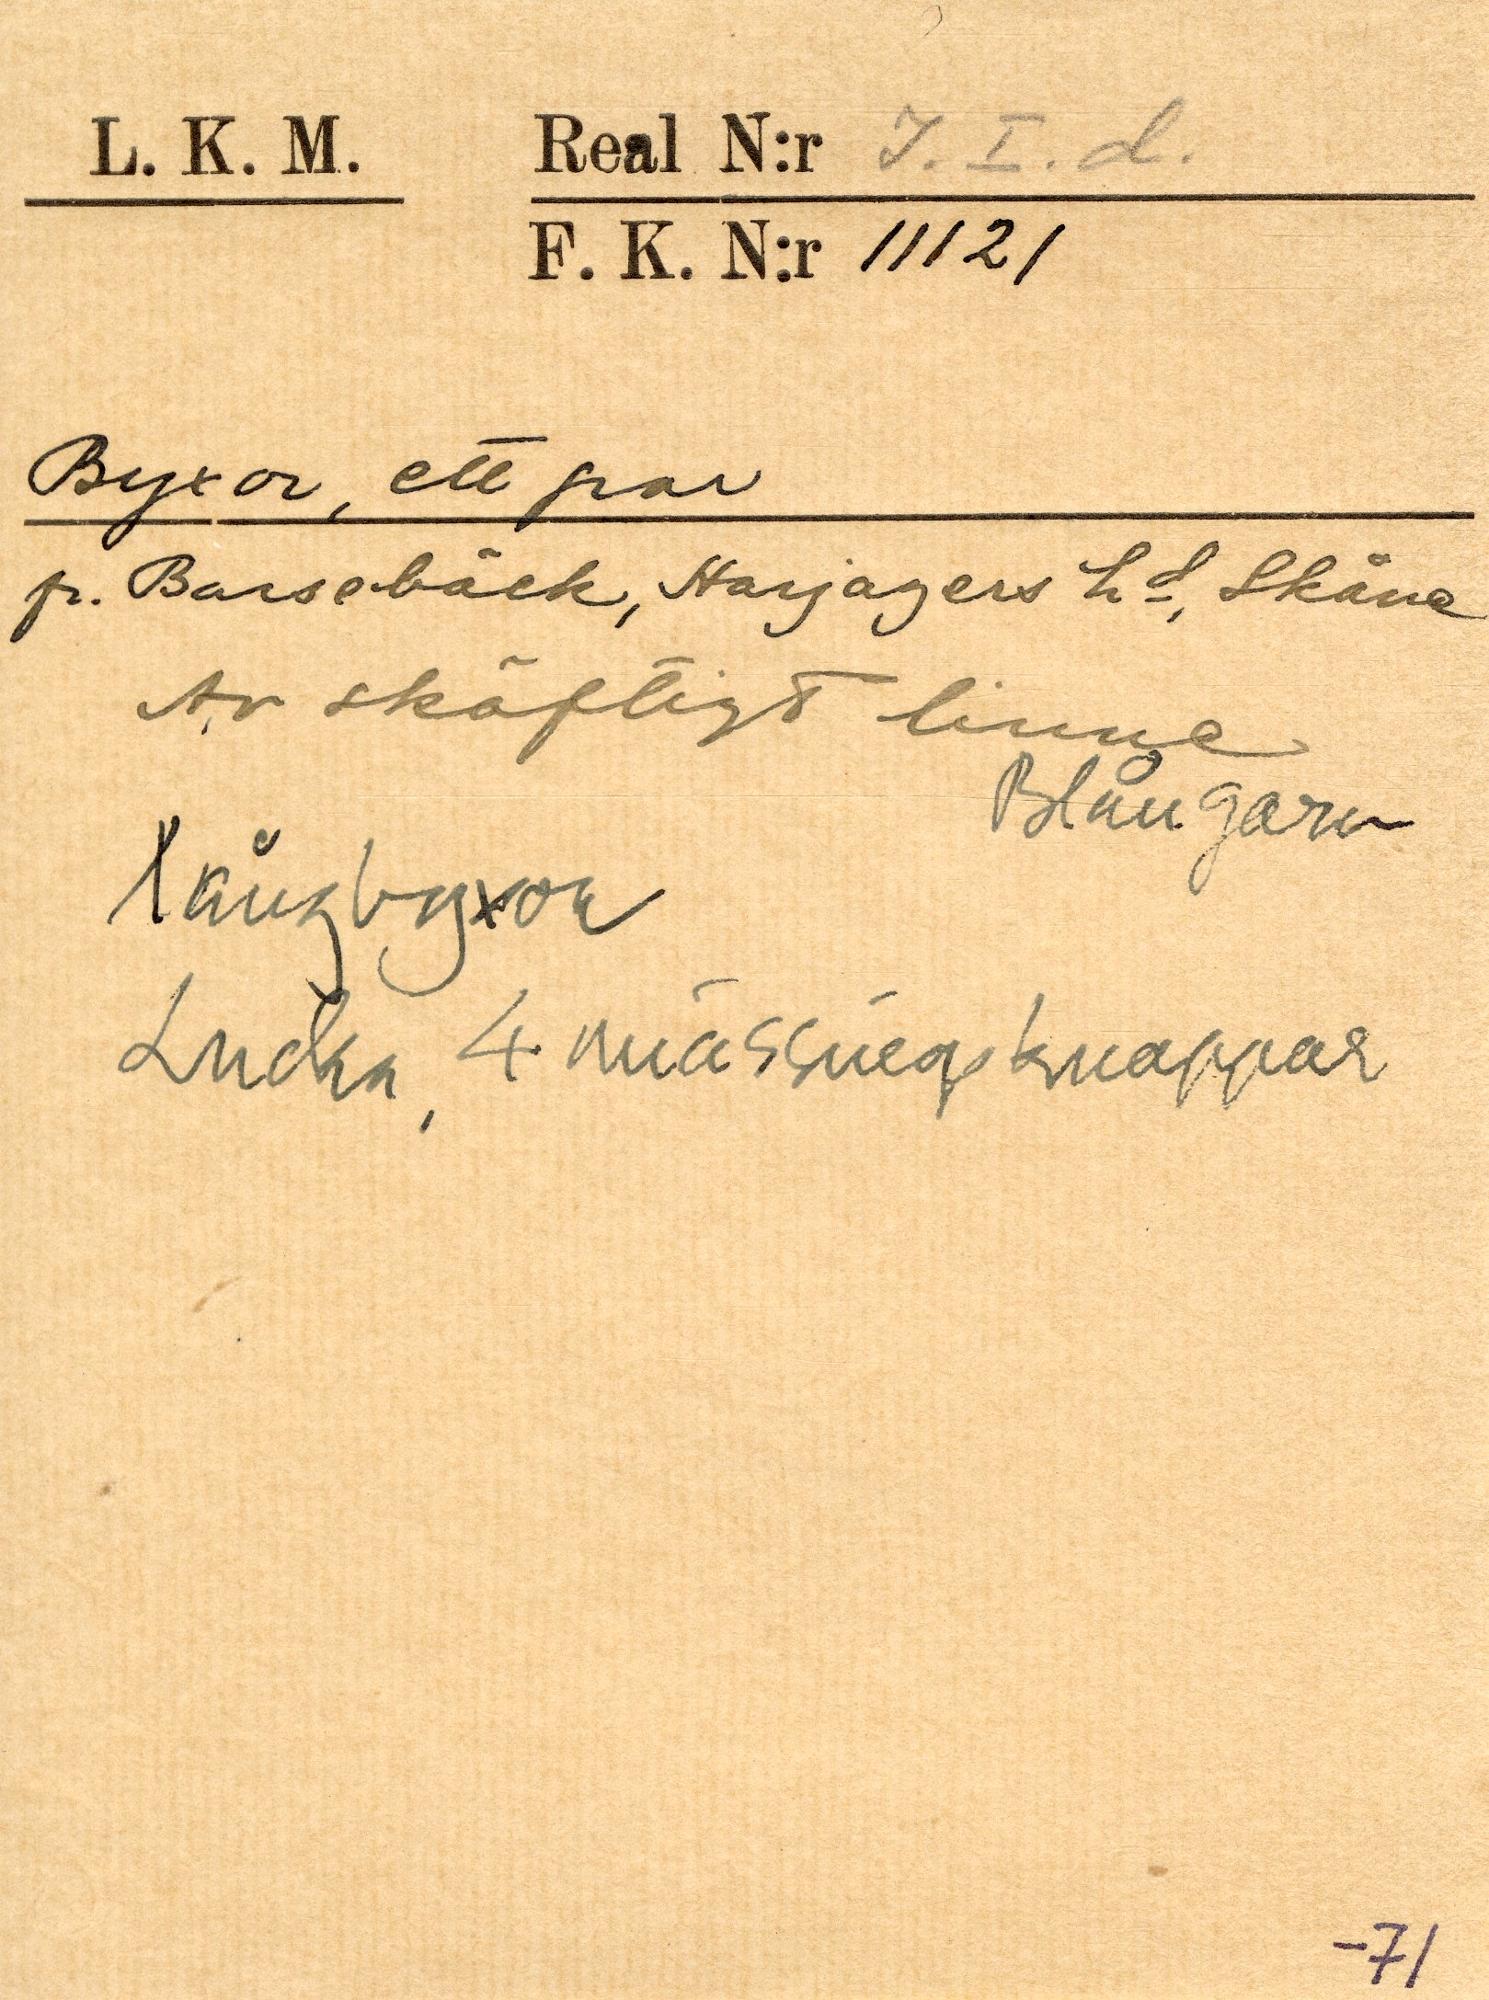 L. K. M. Real N:r I. I. d.
F. K. N:r 11121
Byxor, ett par
fr. Barsebäck, Harjagers hd, Skåne
Av skäftigt linne
Blångarn
Långbyxor
Lucka, 4 mässingsknappar
-71